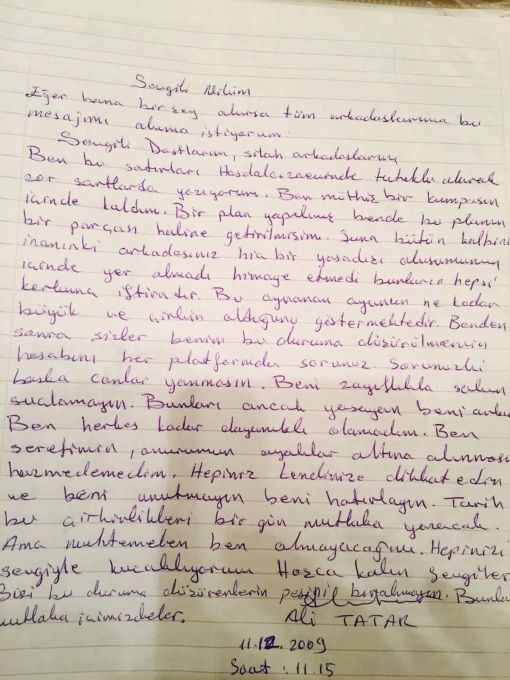 Sevgili Nilüm
Eğer bana bir şey olursa tüm arkadaşlarıma bu
mesajımı okuma istiyorum.
Sevgili Dostlarım, silah arkadaşlarım,
Ben bu satırları Hasdal cezaevinde tutuklu olarak
zor şartlarda yazıyorum. Ben müthiş bir kumpasın
içinde kaldım. Bir plan yapılmış bende bu planın
bir parçası haline getirilmişim. Şuna bütün kalbiniz
inanınki arkadaşınız hiç bir yasadışı oluşumunun
içinde yer almadı himaye etmedi bunların hepsi
korkunç iftiradır. Bu oynanan oyunun ne kadar
büyük ve çirkin olduğunu göstermektedir. Benden
sonra sizler benim bu duruma düşürülmemin
hesabını her platformda sorunuz. Sorunuzki
başka canlar yanmasın. Beni zayıflıkla sakın
suçlamayın. Bunları ancak yaşayan beni anlar
Ben herkes kadar dayanıklı olamadım. Ben
şerefimin, onurumun ayaklar altına alınması
hazmedemedim. Hepiniz kendinize dikkat edin
ve beni unutmayın beni hatırlayın. Tarih
bu çirkinlikleri bir gün mutlaka yenecek.
Ama muhtemelen ben olmayacağım. Hepinizi
sevgiyle kucaklıyorum Hoşça kalın Sevgiler
Bizi bu duruma düşürenlerin peşini bırakmayın. Bunlar
mutlaka içimizdeler.
Ali TATAR
11.12.2009
Saat : 11.15